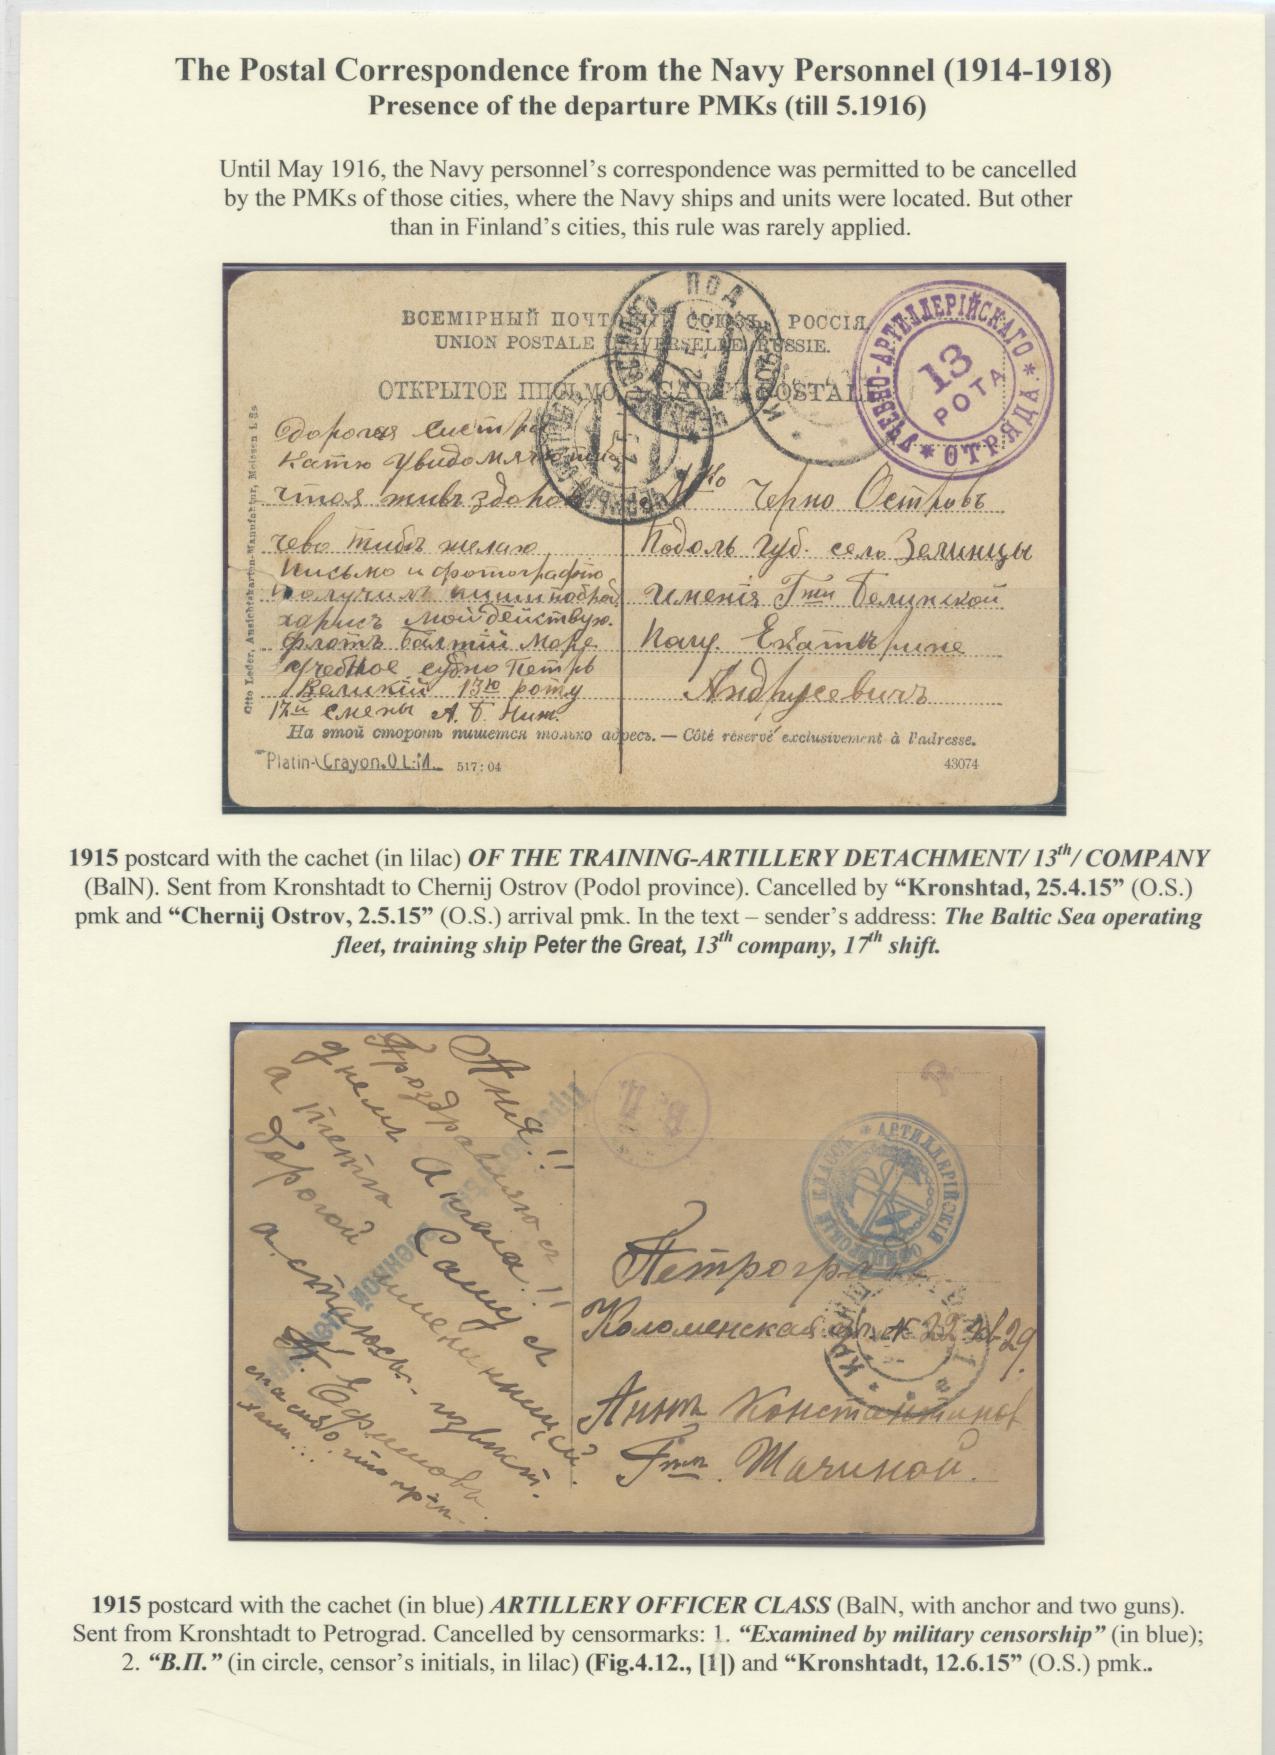 The Postal Correspondence from the Navy Personnel (1914-1918)
Presence of the departure PMKs (till 5.1916)
Until May 1916, the Navy personnel's correspondence was permitted to be cancelled
by the PMKs of those cities, where the Navy ships and units were located. But other
than in Finland's cities, this rule was rarely applied.
ВСЕМІРНЫЙ ПОЧТОВЫЙ СОЮЗЪ. РОССІЯ.
UNION POSTALE UNIVERSELLE. RUSSIE.
ОТКРЫТОЕ ПИСЬМО. — CARTE POSTALE
УЧЕБНО-АРТИЛЛЕРІЙСКАГО * ОТРЯДА. *
13
РОТА
ПОД
Otto Leder, Ansichtskarten-Manufaktur, Meissen i. Sa
Дорогая систра
Катю увидомляю
чтоя живъ здоров
чево тибѣ желаю
Письмо и фотографію
Получилъ
мой действую.
флотъ Балтій Море
учебное судно Петръ
Великій 13ю роту
17й смены А. Б. Ниж.
Черно Островъ
Подоль Губ. село Зелинцы
Именія Гжи Белинской
Полу. Екатѣрине
Андрусевичъ
На этой сторонѣ пишется только адресъ. — Côté réservé exclusivement à l'adresse.
Platin-Crayon.O.L.M. 517:04
43074
1915 postcard with the cachet (in lilac) OF THE TRAINING-ARTILLERY DETACHMENT/ 13th/ COMPANY
(BalN). Sent from Kronshtadt to Chernij Ostrov (Podol province). Cancelled by “Kronshtad, 25.4.15” (O.S.)
pmk and “Chernij Ostrov, 2.5.15” (O.S.) arrival pmk. In the text – sender's address: The Baltic Sea operating
fleet, training ship Peter the Great, 13th company, 17th shift.
Аня!!
Проздравляю съ
днемъ Ангела!!
а тетю Сашу съ
Дорогой имениницей.
астаюсь извѣст.
Н. Ефимовъ
спасибо что
военной
В. П.
АРТИЛЛЕРІЙСКІЙ ОФИЦЕРСКІЙ КЛАССЪ *
Петроград
Коломенская ул. № 22 кв 29.
Аннѣ Константинов
Гжѣ Тачиной.
1915 postcard with the cachet (in blue) ARTILLERY OFFICER CLASS (BalN, with anchor and two guns).
Sent from Kronshtadt to Petrograd. Cancelled by censormarks: 1. “Examined by military censorship” (in blue);
2. “В.П.” (in circle, censor's initials, in lilac) (Fig.4.12., [1]) and “Kronshtadt, 12.6.15” (O.S.) pmk..